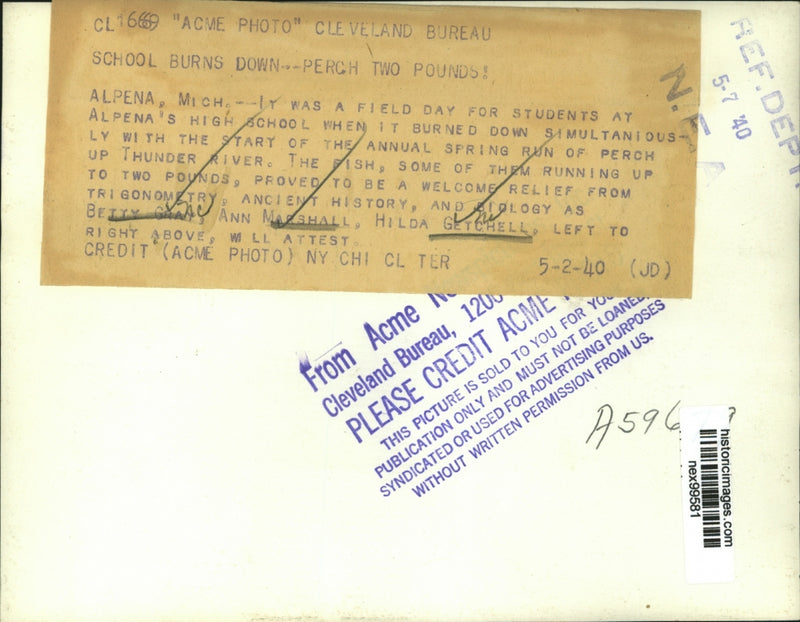 CL 1669 "ACME PHOTO" CLEVELAND BUREAU
SCHOOL BURNS DOWN--PERCH TWO POUNDS!
ALPENA, MICH.--IT WAS A FIELD DAY FOR STUDENTS AT
ALPENA'S HIGH SCHOOL WHEN IT BURNED DOWN SIMULTANIOUS-
LY WITH THE START OF THE ANNUAL SPRING RUN OF PERCH
UP THUNDER RIVER. THE FISH, SOME OF THEM RUNNING UP
TO TWO POUNDS, PROVED TO BE A WELCOME RELIEF FROM
TRIGONOMETRY, ANCIENT HISTORY, AND BIOLOGY AS
BETTY, ANN MARSHALL, HILDA GETCHELL, LEFT TO
RIGHT ABOVE, WILL ATTEST.
CREDIT (ACME PHOTO) NY CHI CL TER 5-2-40 (JD)
REF. DEPT
5-7 '40
N.E.A
From Acme
Cleveland Bureau, 1200
PLEASE CREDIT ACME
THIS PICTURE IS SOLD TO YOU FOR
PUBLICATION ONLY AND MUST NOT BE LOANED,
SYNDICATED OR USED FOR ADVERTISING PURPOSES
WITHOUT WRITTEN PERMISSION FROM US.
A596
historicimages.com
nex99581